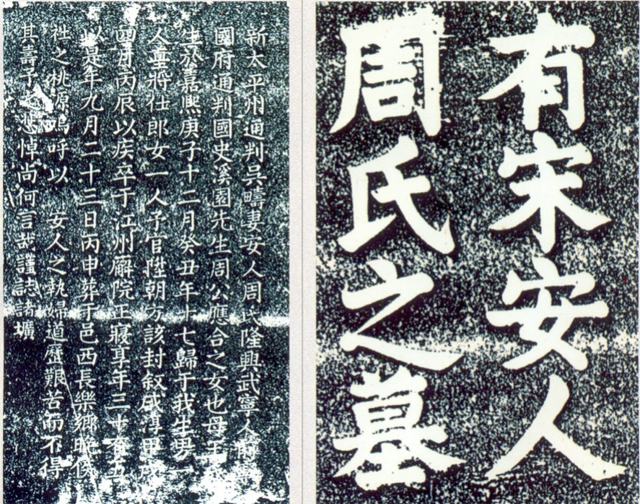 有宋安人
周氏之墓
新太平州通判吳疇妻安人周氏隆興武寧人
國府通判國史溪園先生周公應合之女也母王
生於嘉熙庚子十二月癸丑年十七歸于我生男一
人喜將仕郎女一人予官陞朝該封叙咸淳甲戌
四月丙辰以疾卒于江州廨院正寢享年三十有五
以是年九月二十三日丙申葬于邑西長樂鄉
社之桃源嗚呼以安人之執婦道歷艱苦而不得
其壽予之悲悼尚何言哉謹誌諸壙